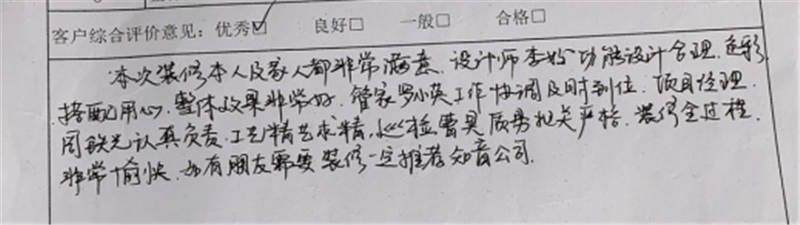 客户综合评价意见：优秀☑ 良好□ 一般□ 合格□
本次装修本人及家人都非常满意．设计师李姣功能设计合理．色彩
搭配用心．整体效果非常好．管家罗小英工作协调及时到位．项目经理．
周铁光认真负责．工艺精艺求精．巡检曹具质势把关严格．装修全过程．
非常愉快．如有朋友需要装修一定推荐知音公司．